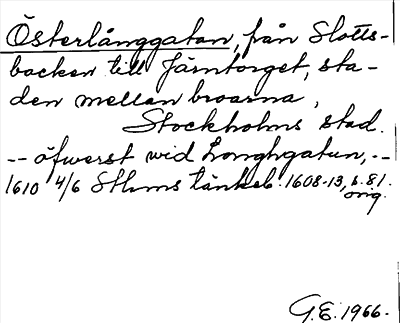 Österlånggatan, från Slotts-
backen till Järntorget, sta-
den mellan broarna,
Stockholms stad.
-- öfwerst wid Longhgatun, --
1610 4/6 Sthms tänkeb. 1608-13, s. 81.
orig.
G.E. 1966.